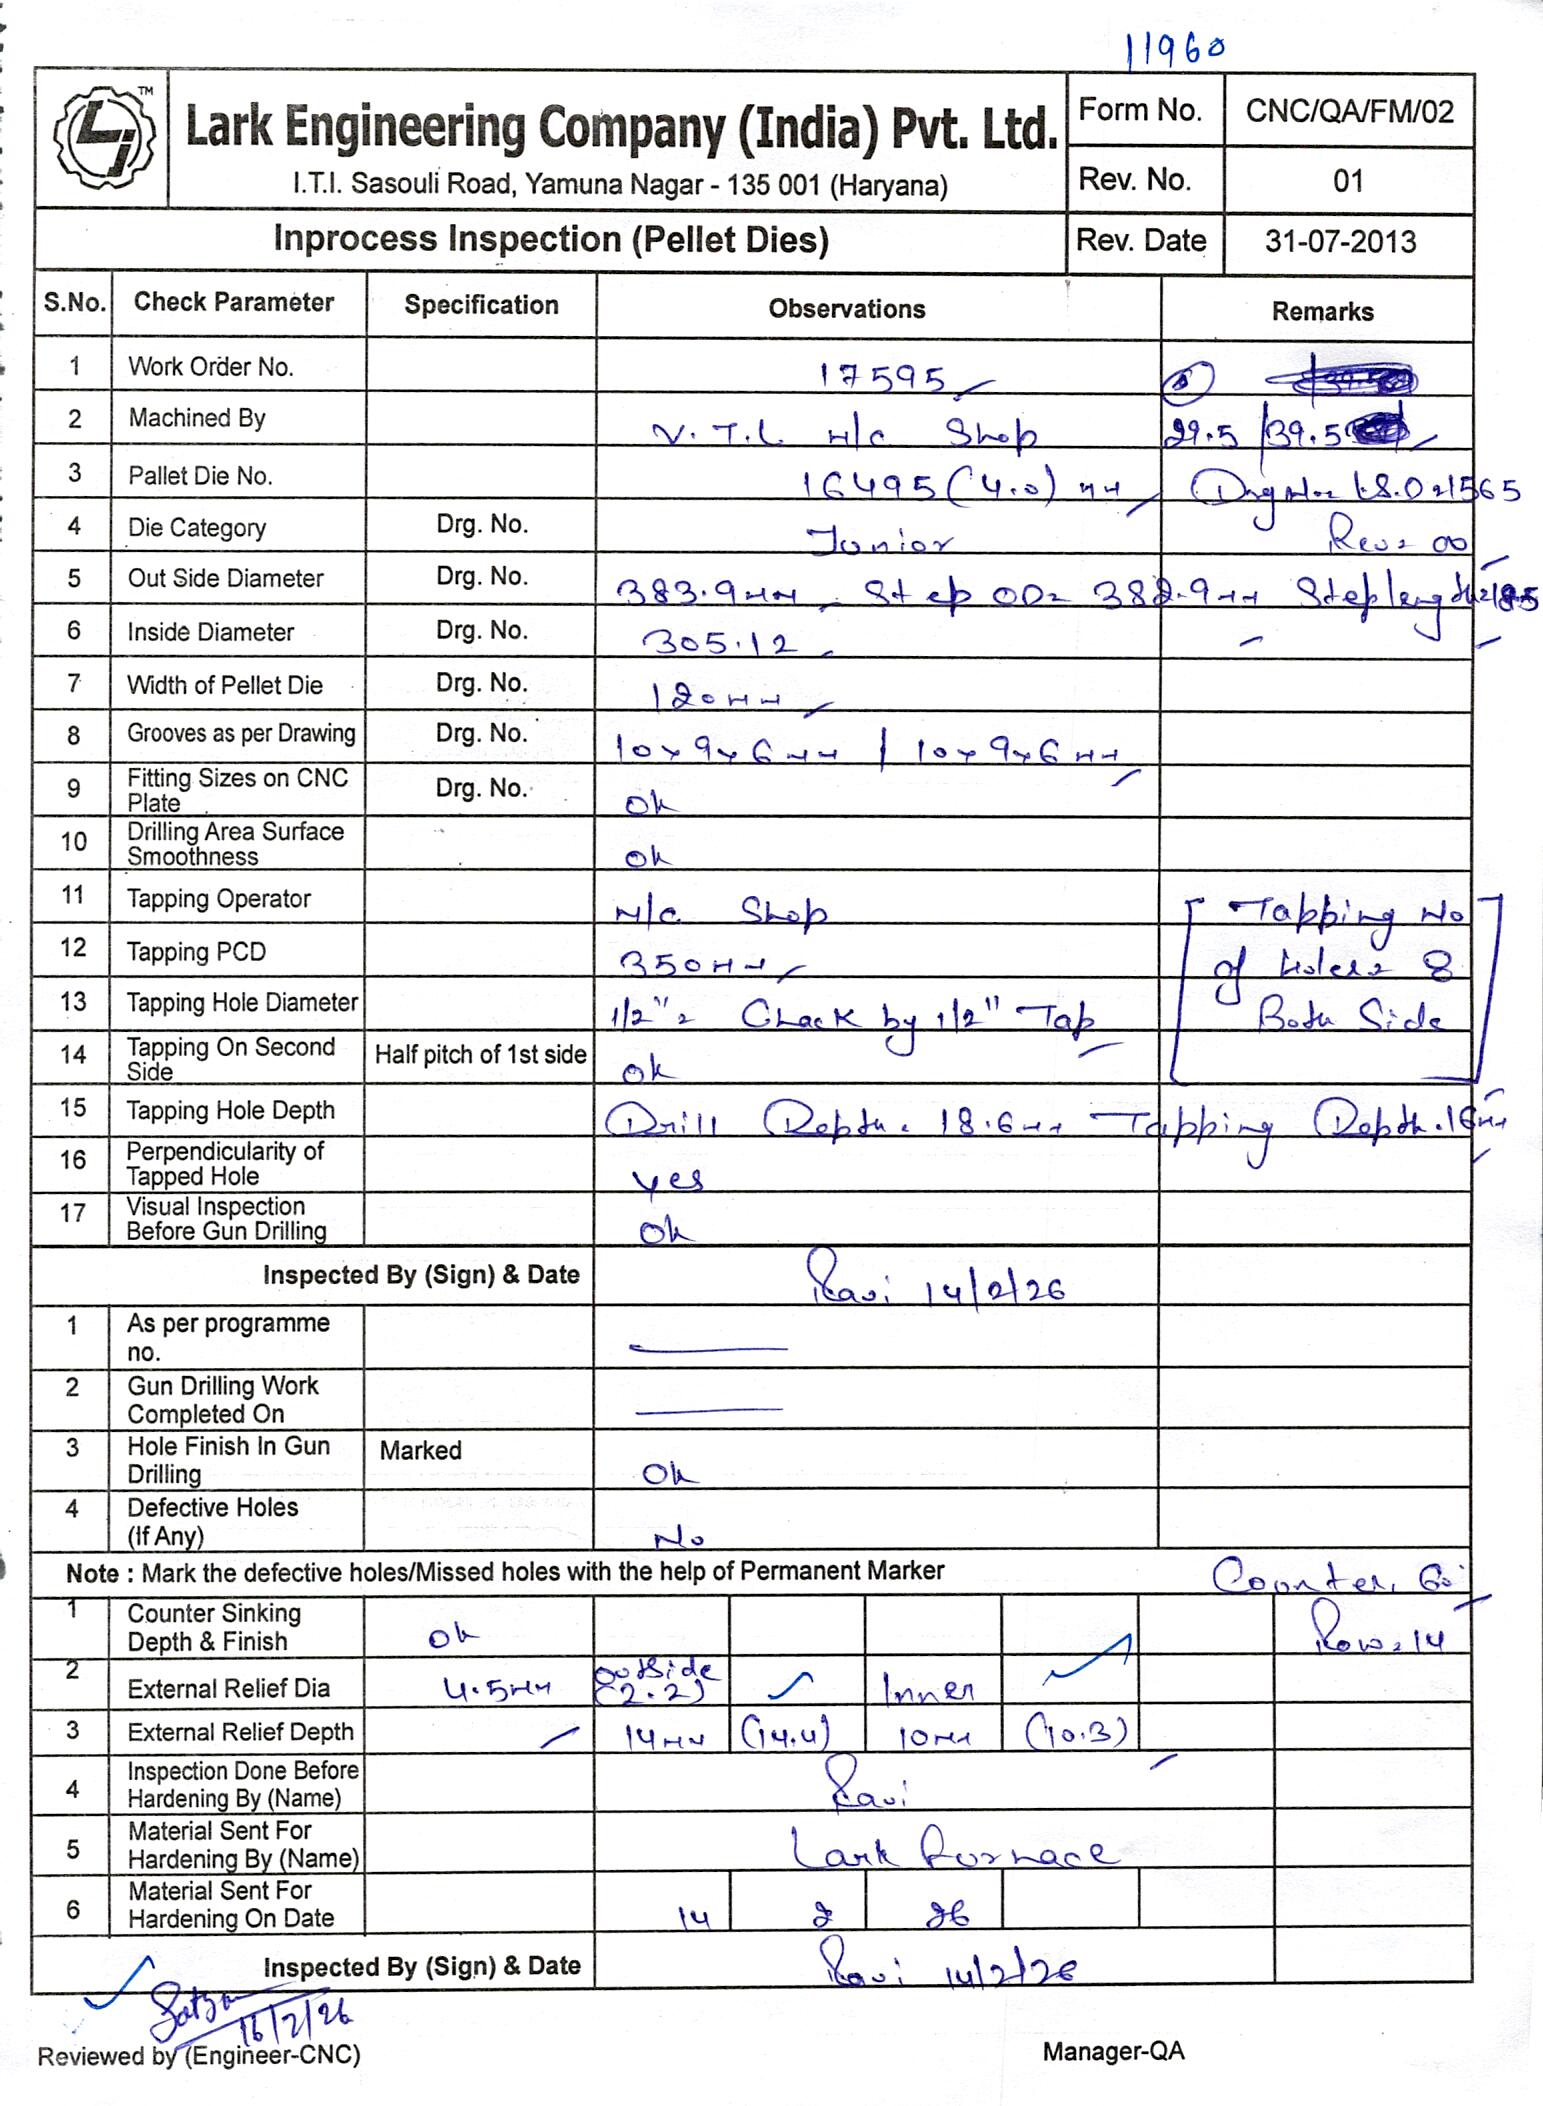 11960
LJ TM
Lark Engineering Company (India) Pvt. Ltd.
I.T.I. Sasouli Road, Yamuna Nagar - 135 001 (Haryana)
Form No. CNC/QA/FM/02
Rev. No. 01
Inprocess Inspection (Pellet Dies) Rev. Date 31-07-2013
S.No. Check Parameter Specification Observations Remarks
1 Work Order No. 17595
2 Machined By V.T.L M/c Shop 29.5 /39.5
3 Pallet Die No. 16495 (4.0) mm Drg No= LS.D=1565
4 Die Category Drg. No. Junior Rev= 00
5 Out Side Diameter Drg. No. 383.9mm Step OD= 382.9mm Step length=185
6 Inside Diameter Drg. No. 305.12
7 Width of Pellet Die Drg. No. 120mm
8 Grooves as per Drawing Drg. No. 10x9x6mm / 10x9x6mm
9 Fitting Sizes on CNC Plate Drg. No. Ok
10 Drilling Area Surface Smoothness Ok
11 Tapping Operator M/c Shop Tapping No
12 Tapping PCD 350mm of Holes= 8
13 Tapping Hole Diameter 1/2"= Chack by 1/2" Tap Both Side
14 Tapping On Second Side Half pitch of 1st side Ok
15 Tapping Hole Depth Drill Depth. 18.6mm Tapping Depth.16mm
16 Perpendicularity of Tapped Hole Yes
17 Visual Inspection Before Gun Drilling Ok
Inspected By (Sign) & Date Ravi 14/2/26
1 As per programme no.
2 Gun Drilling Work Completed On
3 Hole Finish In Gun Drilling Marked Ok
4 Defective Holes (If Any) No
Note : Mark the defective holes/Missed holes with the help of Permanent Marker Counter. 60
1 Counter Sinking Depth & Finish Ok Row=14
2 External Relief Dia 4.5mm Outside (2.2) Inner
3 External Relief Depth 14mm (14.4) 10mm (10.3)
4 Inspection Done Before Hardening By (Name) Ravi
5 Material Sent For Hardening By (Name) Lark Furnace
6 Material Sent For Hardening On Date 14 2 26
Inspected By (Sign) & Date Ravi 14/2/26
16/2/26
Reviewed by (Engineer-CNC) Manager-QA